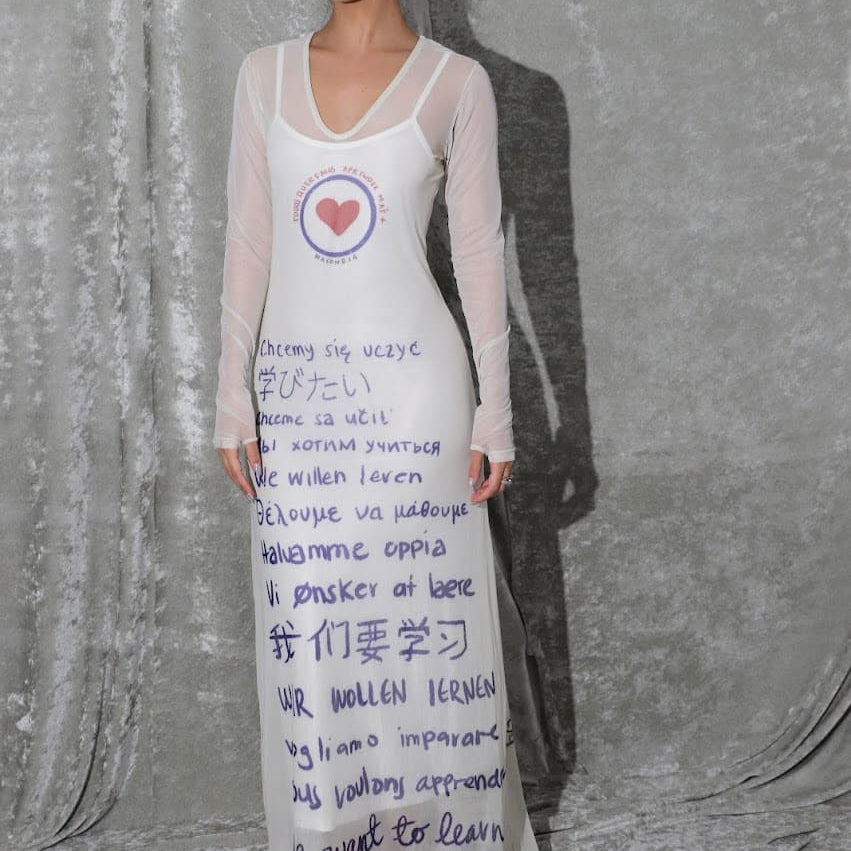 TODOS QUEREMOS APRENDER MAS
Chcemy się uczyć
学びたい
chceme sa učiť
хотим учиться
We willen leren
Θέλουμε να μάθουμε
Haluamme oppia
Vi ønsker at lære
我们要学习
WIR WOLLEN lERNEN
vogliamo imparare
voulons apprendre
want to learn